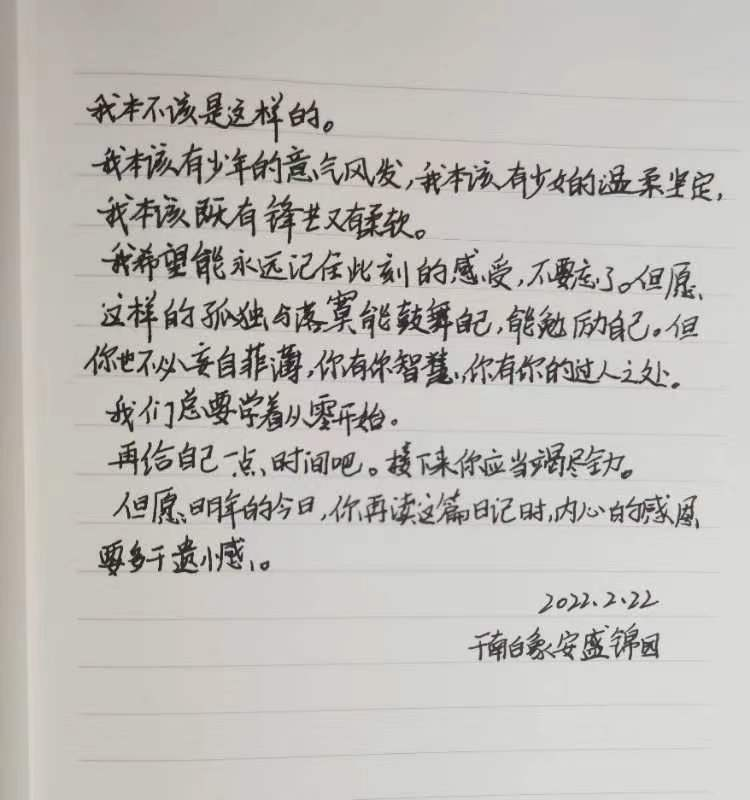 我本不该是这样的。
我本该有少年的意气风发,我本该有少女的温柔坚定,
我本该既有锋芒又有柔软。
我希望能永远记住此刻的感受,不要忘了。但愿
这样的孤独与落寞能鼓舞自己,能勉励自己。但
你也不必妄自菲薄,你有你智慧,你有你的过人之处。
我们总要学着从零开始。
再给自己一点时间吧。接下来你应当竭尽全力。
但愿明年的今日,你再读这篇日记时,内心的感恩
要多于遗憾。
2022.2.22
于南白象安盛锦园